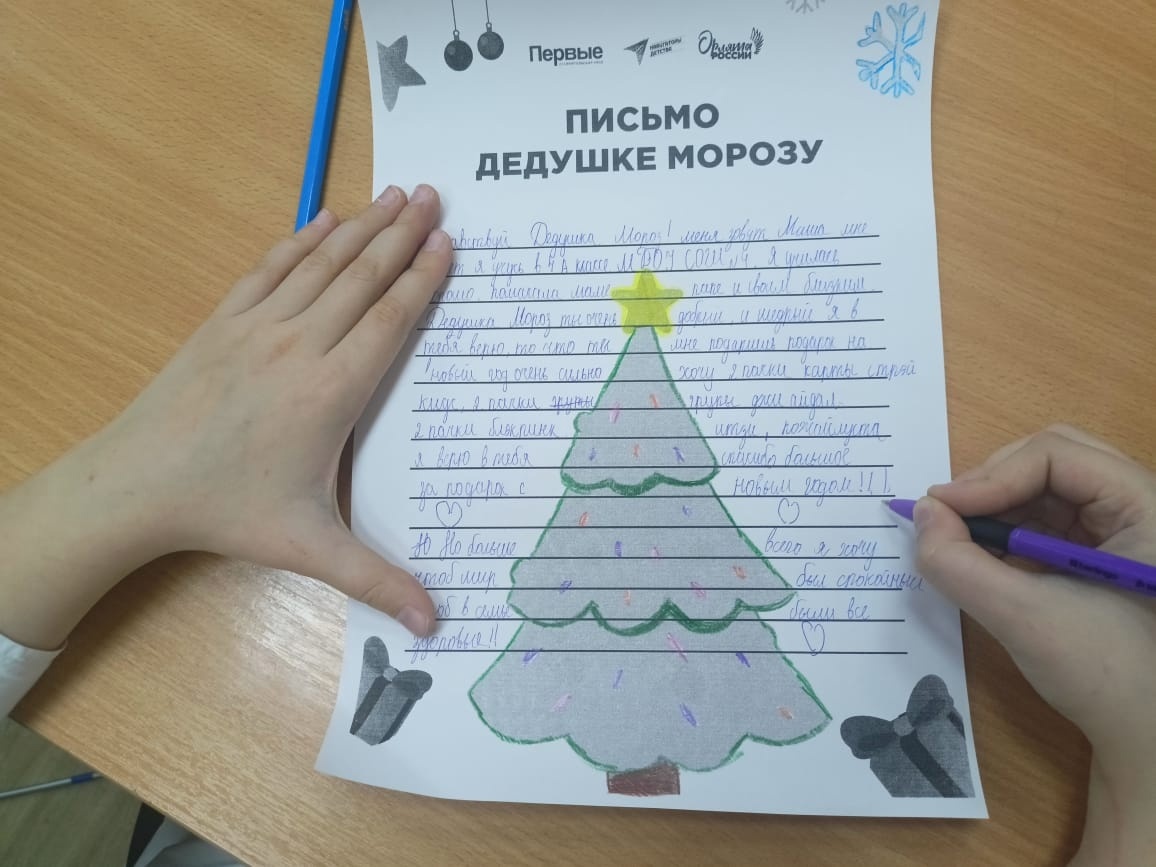 Первые
НАВИГАТОРЫ ДЕТСТВА
Орлята РОССИИ
ПИСЬМО
ДЕДУШКЕ МОРОЗУ
Дедушка Мороз! меня зовут Маша мне
я учусь в 4 А классе МБОУ СОШ №4. Я училась
помогала маме папе и своим близким.
Дедушка Мороз ты очень добрый, и щедрый я в
тебя верю, то что ты мне подаришь подарок на
новый год очень сильно хочу 2 пачки карты стрэй
кидс, 2 пачки группы джи айдал
2 пачки блэкпинк итзи, пожалуйста
я верю в тебя спасибо большое
за подарок с новым годом!!!
Но больше всего я хочу
чтоб мир был спокойный
в семье были все
здоровые!!